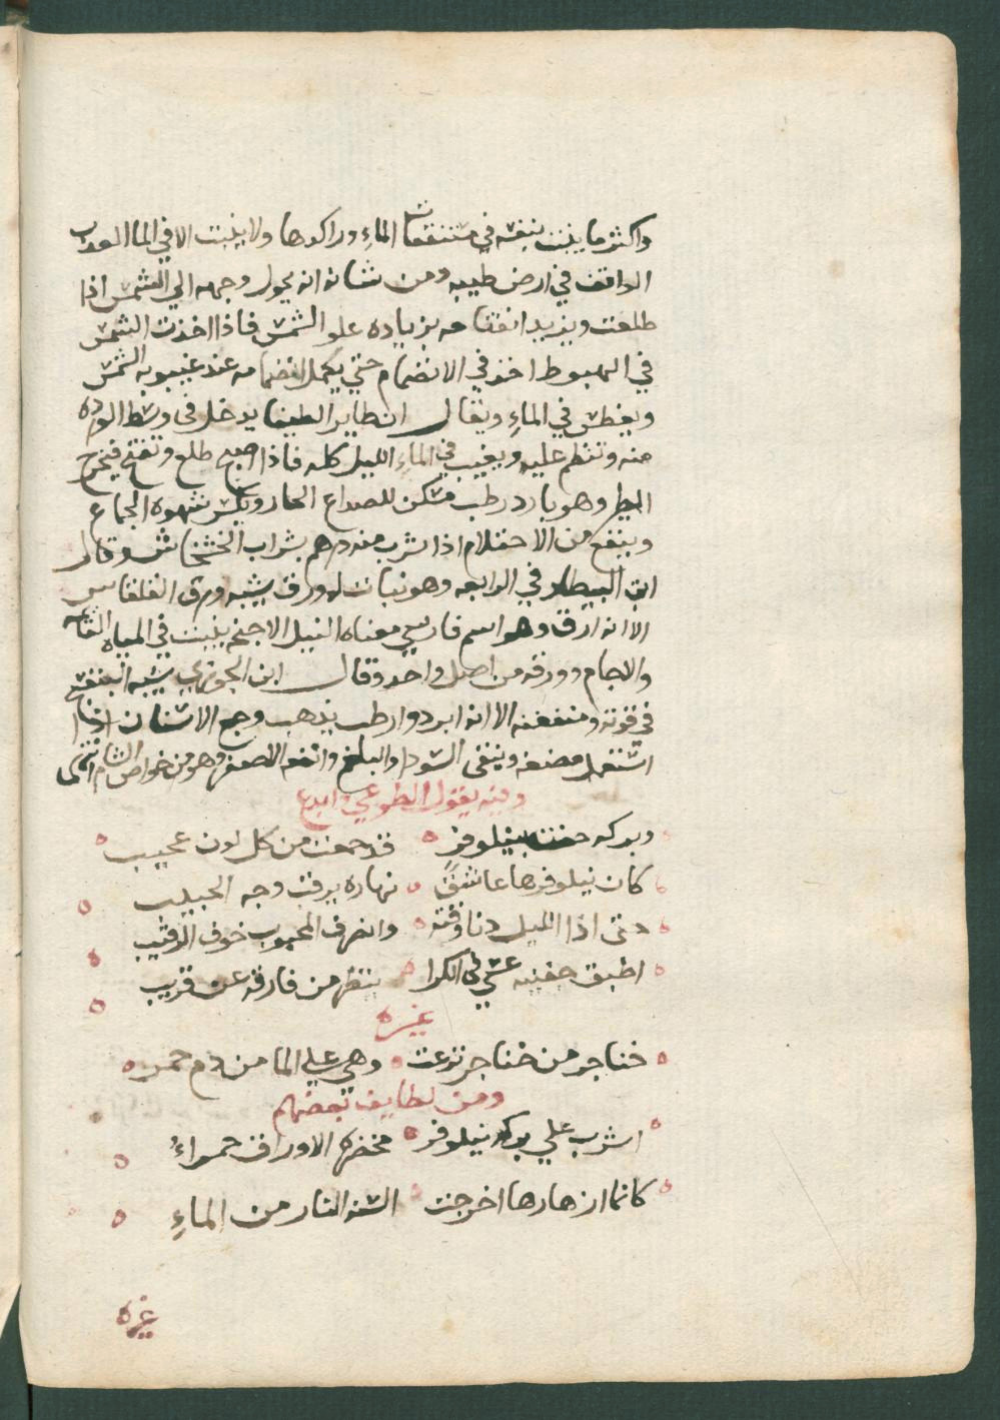 واكثر ما ينبت بنفسه في مستنقعات الماءِ وراكدها ولا ينبت الا في الما العذب
الواقف في ارض طيبه ومن شانه انه يحول وجهه الي الشمس اذا
طلعت ويزيد انفتاحه بزياده علو الشمس فاذا اخذت الشمس
في الهبوط اخذ في الانضمام حتي يكمل انضمامه عند غيبوبه الشمس
ويغطس في الماءِ ويقال ان طاير الطيفا يدخل في وسط الورده
منه وتنظم عليه ويغيب في الماءِ الليل كله فاذا اصبح طلع وتفتح فيخرج
الطير وهو بارد رطب مسكن للصداع الحار ويكسر شهوه الجماع
وينفع من الاحتلام اذا شرب منه درهم بشراب الخشخاش وقال
ابن البيطار في الرابعه وهو نبات له ورق يشبه ورق القلقاس
الا انه ارق وهو اسم فارسي معناه النيل الاجنح ينبت في المياه القايمه
والاجام وورقه من اصل واحد وقال ابن الجوزي يشبه البنفسج
في قوته ومنفعته الا انه ابرد وارطب يذهب وجع الاسنان اذا
استعمل مضغه وينقي السودا والبلغم وانفعه الاصفر وهو من خواص الشام انتهى
وفيه يقول الطوعي وابدع
وبركه حفت بنيلوفر قد جمعت من كل لون عجيب
كان نيلوفرها عاشقً نهاره يرقب وجه الحبيب
حتى اذا الليل دنا وقته وانصرف المحبوب خوف الرقيب
اطبق جفنيه عسي في الكرا ينظر من فارقه عن قريب
غيره
خناجر من خناجر نزعت وهي علي الما من دم حمر
ومن لطايف بعضهم
اشرب علي بركه نيلوفر مخضرة الاوراق حمراءُ
كانما ازهارها اخرجت السنه النار من الماءِ
غيره